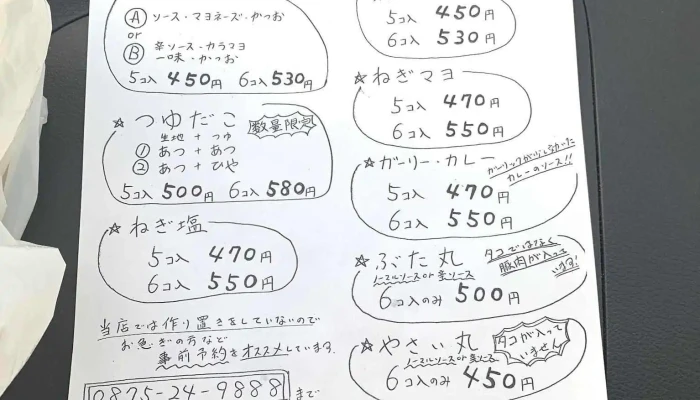 Ⓐ ソース・マヨネーズ・かつお
or
Ⓑ 辛ソース・カラマヨ
一味・かつお
5コ入 450円 6コ入 530円
☆ つゆだこ 数量限定
生地 + つゆ
① あつ + あつ
② あつ + ひや
5コ入 500円 6コ入 580円
☆ ねぎ塩
5コ入 470円
6コ入 550円
当店では作り置きをしていないので
お急ぎの方など
事前予約をオススメしています。
0875-24-9888 まで
5コ入 450円
6コ入 530円
☆ ねぎマヨ
5コ入 470円
6コ入 550円
☆ ガーリー・カレー
ガーリックが
カレーのソース!!
5コ入 470円
6コ入 550円
☆ ぶた丸
タコではなく
豚肉が入って
います!
ノーマルソース or 辛ソース
6コ入のみ 500円
☆ やさい丸
タコが入って
いません
ノーマルソース or 辛ソース
6コ入のみ 450円